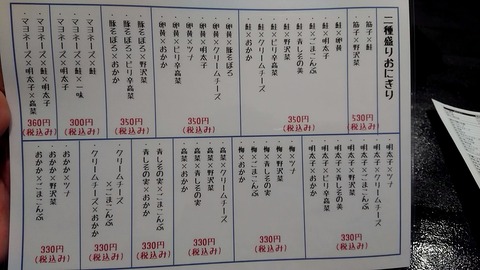 二種盛りおにぎり
・筋子×鮭
・筋子×野沢菜
530円
(税込み)
・鮭×卵黄
・鮭×ごまこんぶ
・鮭×明太子
・鮭×青しその実
・鮭×野沢菜
・鮭×ピリ辛高菜
・鮭×クリームチーズ
・鮭×おかか
350円
(税込み)
・卵黄×豚そぼろ
・卵黄×クリームチーズ
・卵黄×明太子
・卵黄×ツナ
・卵黄×ピリ辛高菜
・卵黄×おかか
350円
(税込み)
・豚そぼろ×野沢菜
・豚そぼろ×ピリ辛高菜
・豚そぼろ×おかか
350円
(税込み)
・マヨネーズ×鮭
・マヨネーズ×鮭×一味
300円
(税込み)
・マヨネーズ×明太子
・マヨネーズ×明太子×高菜
360円
(税込み)
・明太子×ツナ
・明太子×クリームチーズ
・明太子×ごまこんぶ
・明太子×野沢菜
・明太子×青しその実
・明太子×ピリ辛高菜
・明太子×おかか
330円
(税込み)
・梅×ツナ
・梅×野沢菜
・梅×青しその実
・梅×ごまこんぶ
・梅×おかか
330円
(税込み)
・高菜×クリームチーズ
・高菜×野沢菜
・高菜×青しその実
・高菜×おかか
330円
(税込み)
・青しその実×ごまこんぶ
・青しその実×おかか
330円
(税込み)
・クリームチーズ
×ごまこんぶ
・クリームチーズ×おかか
330円
(税込み)
・おかか×ツナ
・おかか×野沢菜
・おかか×ごまこんぶ
330円
(税込み)